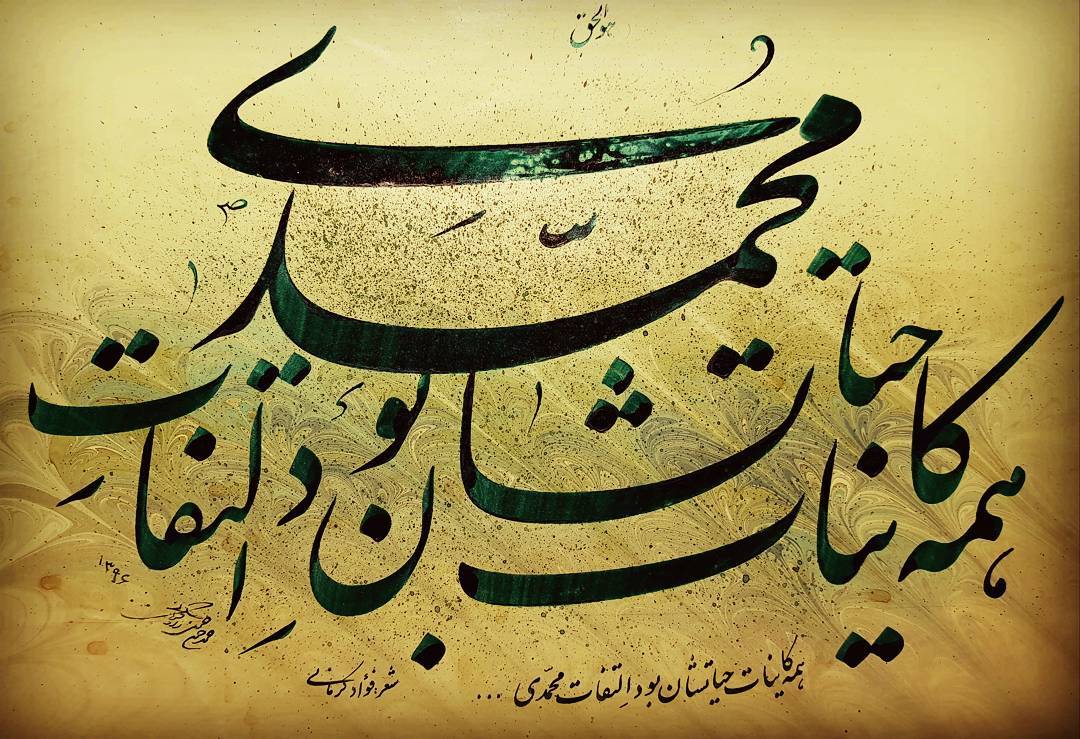 هوالحق
همه کاینات حیاتشان بود از التفات محمّدی
۱۳۹۶
همه کاینات حیاتشان بود التفات محمّدی ...
شعر: فؤاد کرمانی